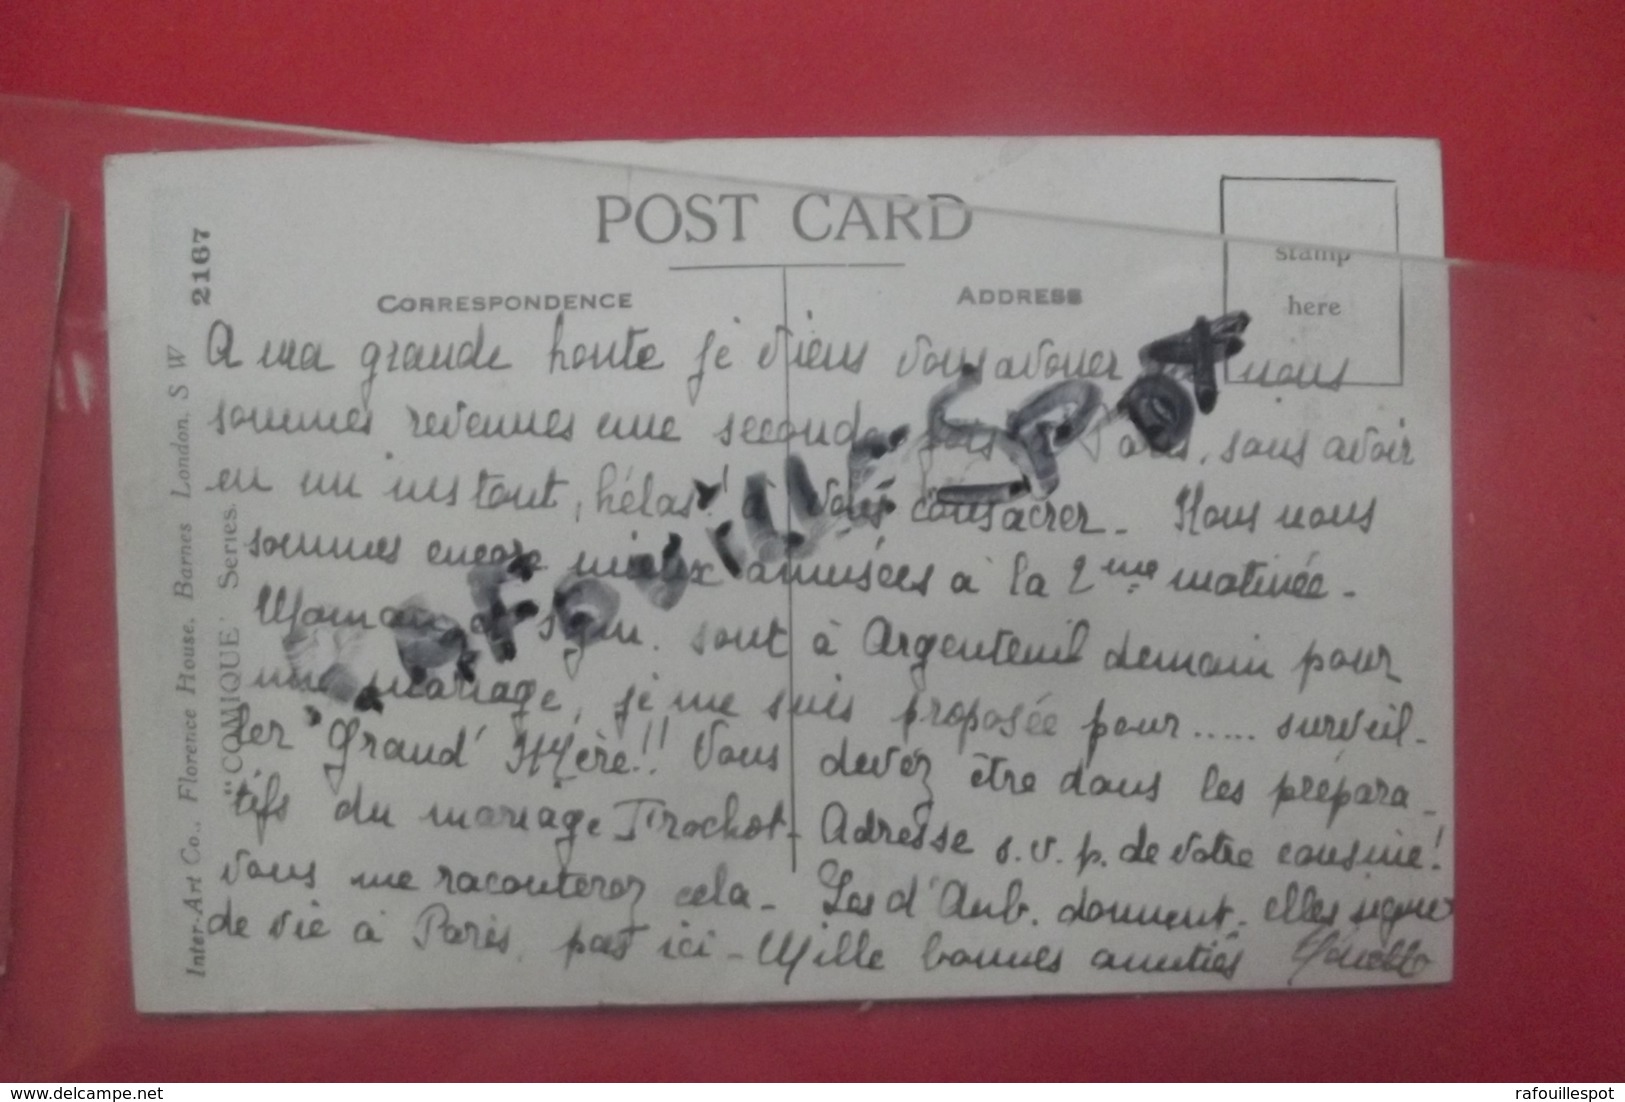 POST CARD
CORRESPONDENCE
ADDRESS
stamp
here
2167
Inter-Art Co., Florence House, Barnes London. S W
"COMIQUE" Series.
RAFOUILLESPOT
A ma grande honte je viens vous avouer nous
sommes revenues une seconde fois à Paris, sans avoir
eu un instant, hélas! à vous consacrer - Nous nous
sommes encore mieux amusées à la 2me matinée -
Maman et sont à Argenteuil demain pour
un mariage, je me suis proposée pour..... surveil-
ler Grand' Mère!! Vous devez être dans les prépara-
tifs du mariage Trochot - Adresse s.v.p. de votre cousine!
vous me raconterez cela - Les d'Aub. donnent elles signe
de vie à Paris, pas ici - Mille bonnes amitiés
delcampe.net
rafouillespot